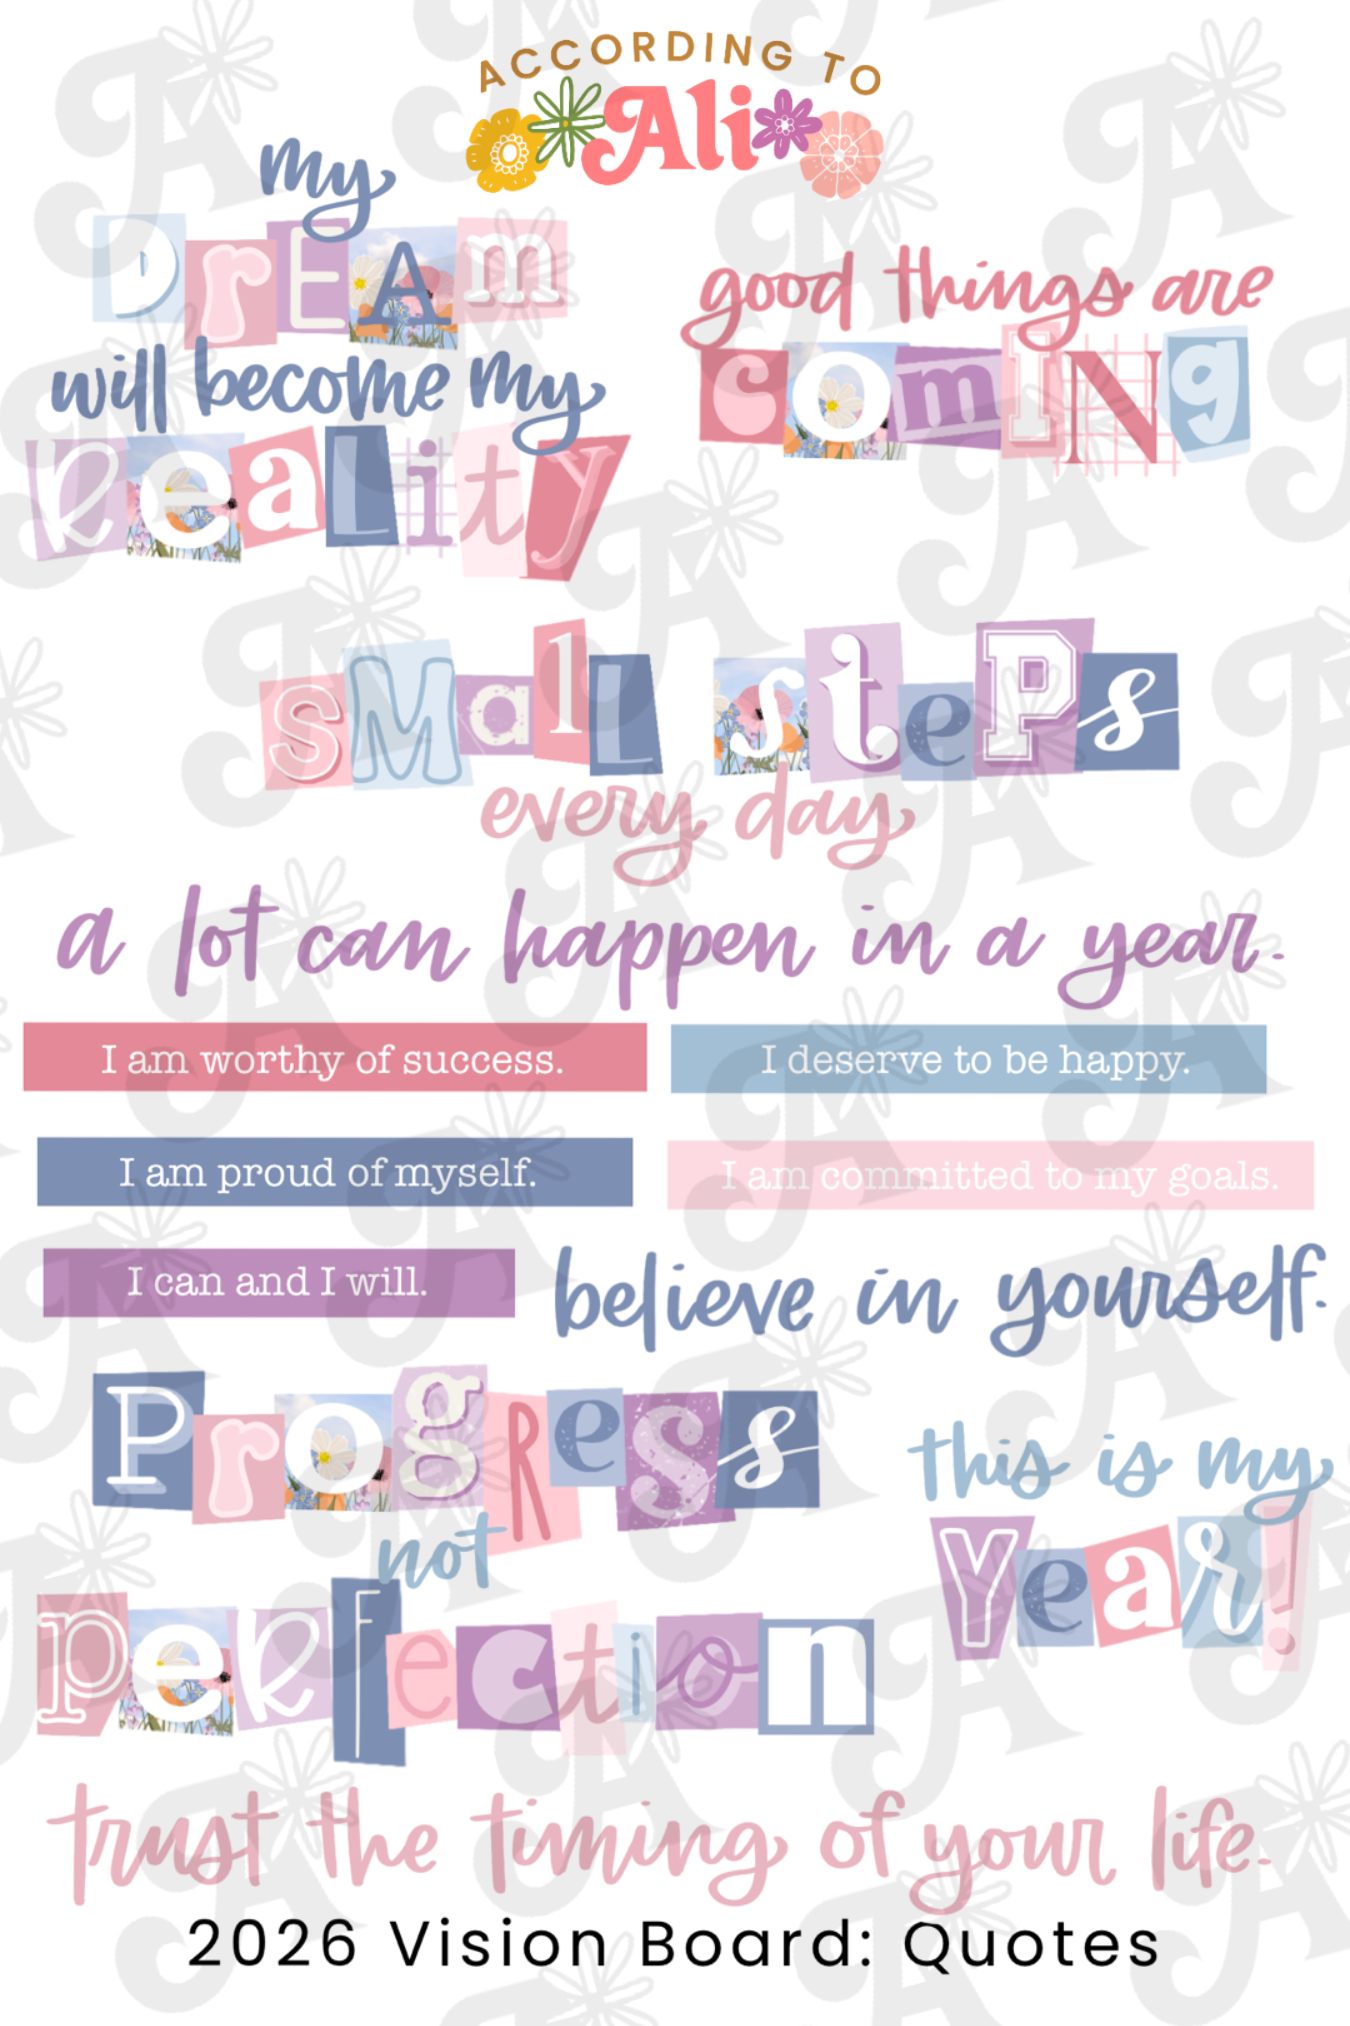 ACCORDING TO
Ali
my
DrEAm
will become my
ReaLity
good things are
comINg
SMalL stePs
every day
a lot can happen in a year.
I am worthy of success.
I deserve to be happy.
I am proud of myself.
I am committed to my goals.
I can and I will.
believe in yourself.
ProgReSs
not
peRfection
this is my
Year!
trust the timing of your life.
2026 Vision Board: Quotes